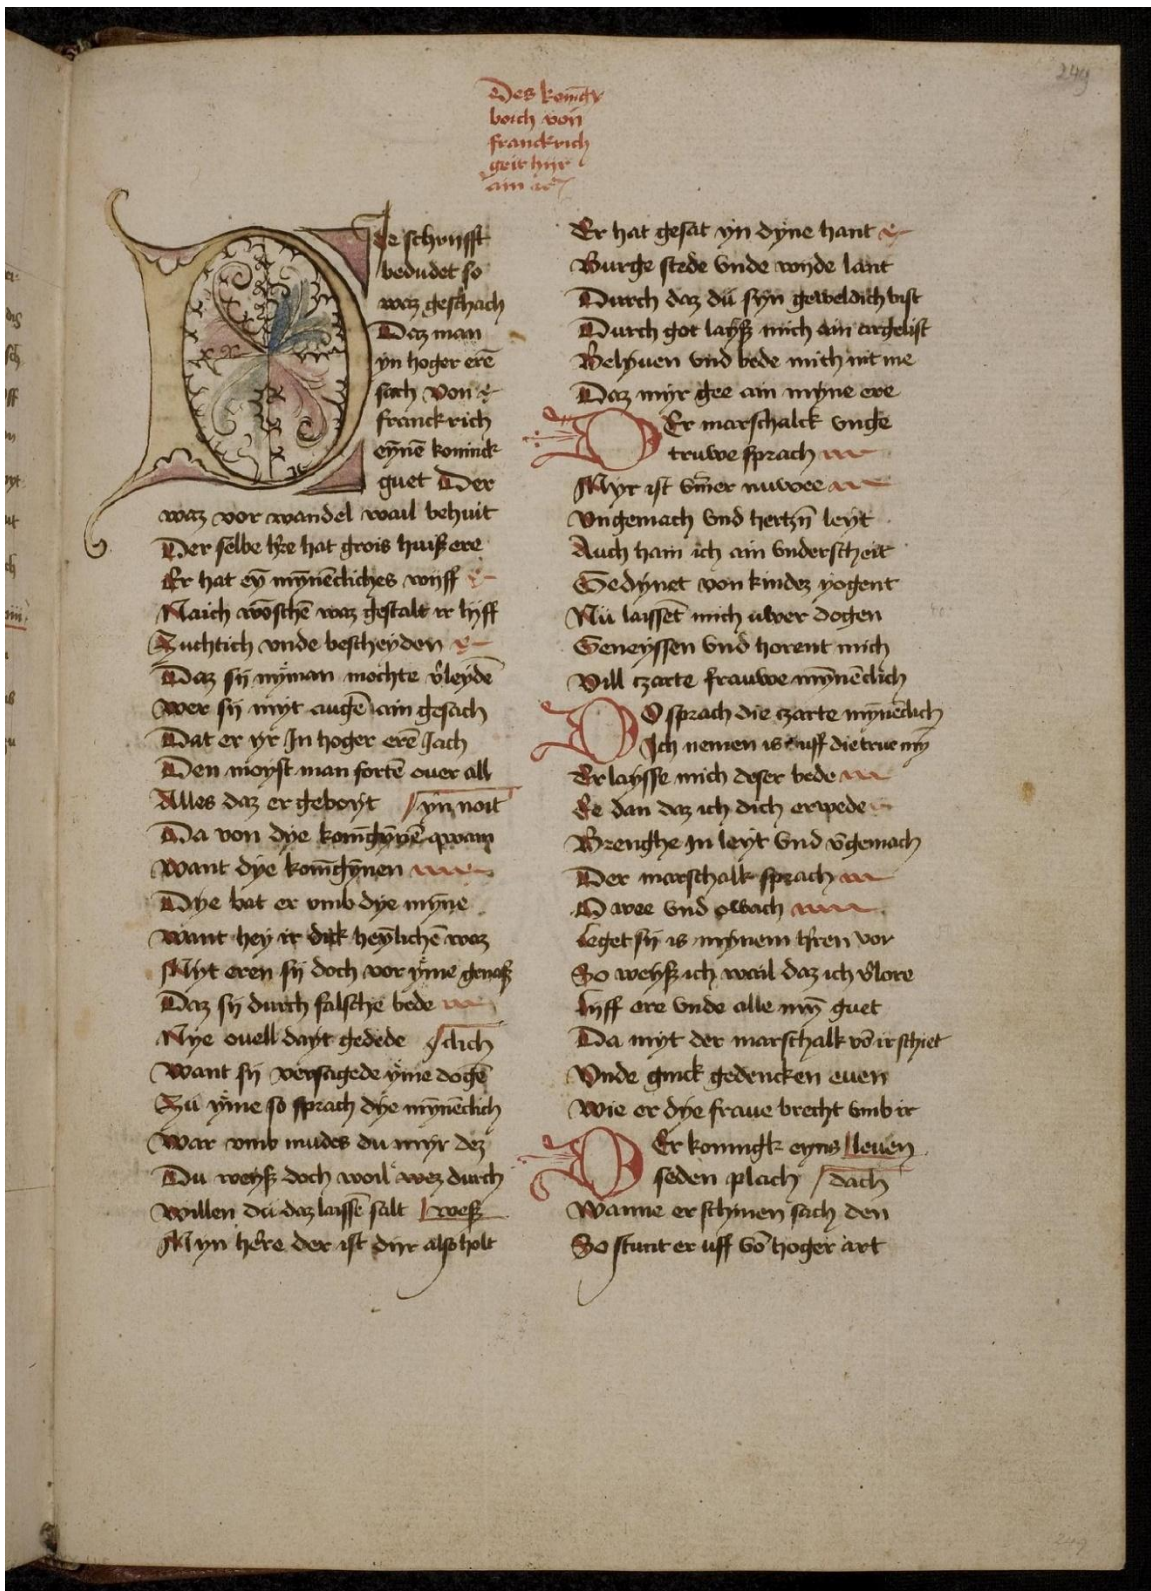 249
Des konīgꝭ
boich von
franckrich
geit hijr
ain ac
Die schrijfft
bedudet so
waz geschach
Daz man
yn hoger erē
sach Von
franckrich
eynē koninck
guet Der
waz vor wandel wail behuit
Der selbe h're hat grois huiß ere
Er hat eȳ mȳnēcliches wijff
Naich wōschē waz gestalt ir lijff
Zuchtich vnde bescheyden
Daz sij nyman mochte v'leydē
wer sij myt augē ain gesach
Dat er yr In hoger erē Jach
Den moyst man fortē ouer all
Alles daz er geboyt / yn noit
Da von dye konīgȳnē quam
want dye konīgȳnen
Dye bat er vmb dye myne
want hey ir dick heymlichē waz
Myt eren sij doch vor yme genaß
Daz sij durch falsche bede
Nye ouell dayt gedede / clich
want sij versagede yme dogē
Zü yme so sprach dye mȳnēclich
war vmb mudes du myr dez
Du weyß doch woil wez durch
willen du daz laissē salt / weß
Myn h're der ist dyr also holt
Er hat gesat yn dyne hant
Burge stede vnde wyde lant
Durch daz dü syn geweldich bist
Durch got layß mich ain argelist
Belyuen vnd bede mich nit me
Daz myr gee ain myne ere
Der marschalck vnge
truwe sprach
Myr ist ūmer nuwee
vngemach vnd hertzn leyt
Auch hain ich ain vnderscheit
Gedynet von kindez yogent
Nü laissēt mich uwer dogen
Geneyssen vnd horent mich
Vill czarte frauwe mȳnēclich
Do sprach die czarte mȳnēclich
Ich nemen is uff die truemȳ
Erlaysse mich deser bede
Ee dan daz ich dich erwede
Brenghe In leyt vnd v̄gemach
Der marschalk sprach
O wee vnd owach
leget sij is mynem h'ren vor
So weyß ich wail daz ich v'lore
lijff ere vnde alle mȳ guet
Da myt der marschalk vō ir schiet
Vnde ginck gedencken euen
Wie er dye fraue brecht vmb ir
Der koningk eyns / leuen
seden plach / dach
Wanne er schinen sach den
So stunt er uff vō hoger art
249